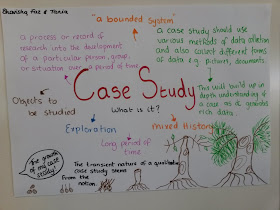 Bhavisha, Faz & Tania
"a bounded system"
a process or record of
research into the development
of a particular person, group,
or situation over a period of time
a case study should use
various methods of data collection
and also collect different forms
of data e.g. pictures, documents
Case Study
What is it?
This will build up in
depth understanding of
a case as it generates
rich data.
Objects to
be studied
Exploration
mixed History
Long period of
time
The growth
of my case
study!
The transient nature of a qualitative
case study stems
from the
notion.